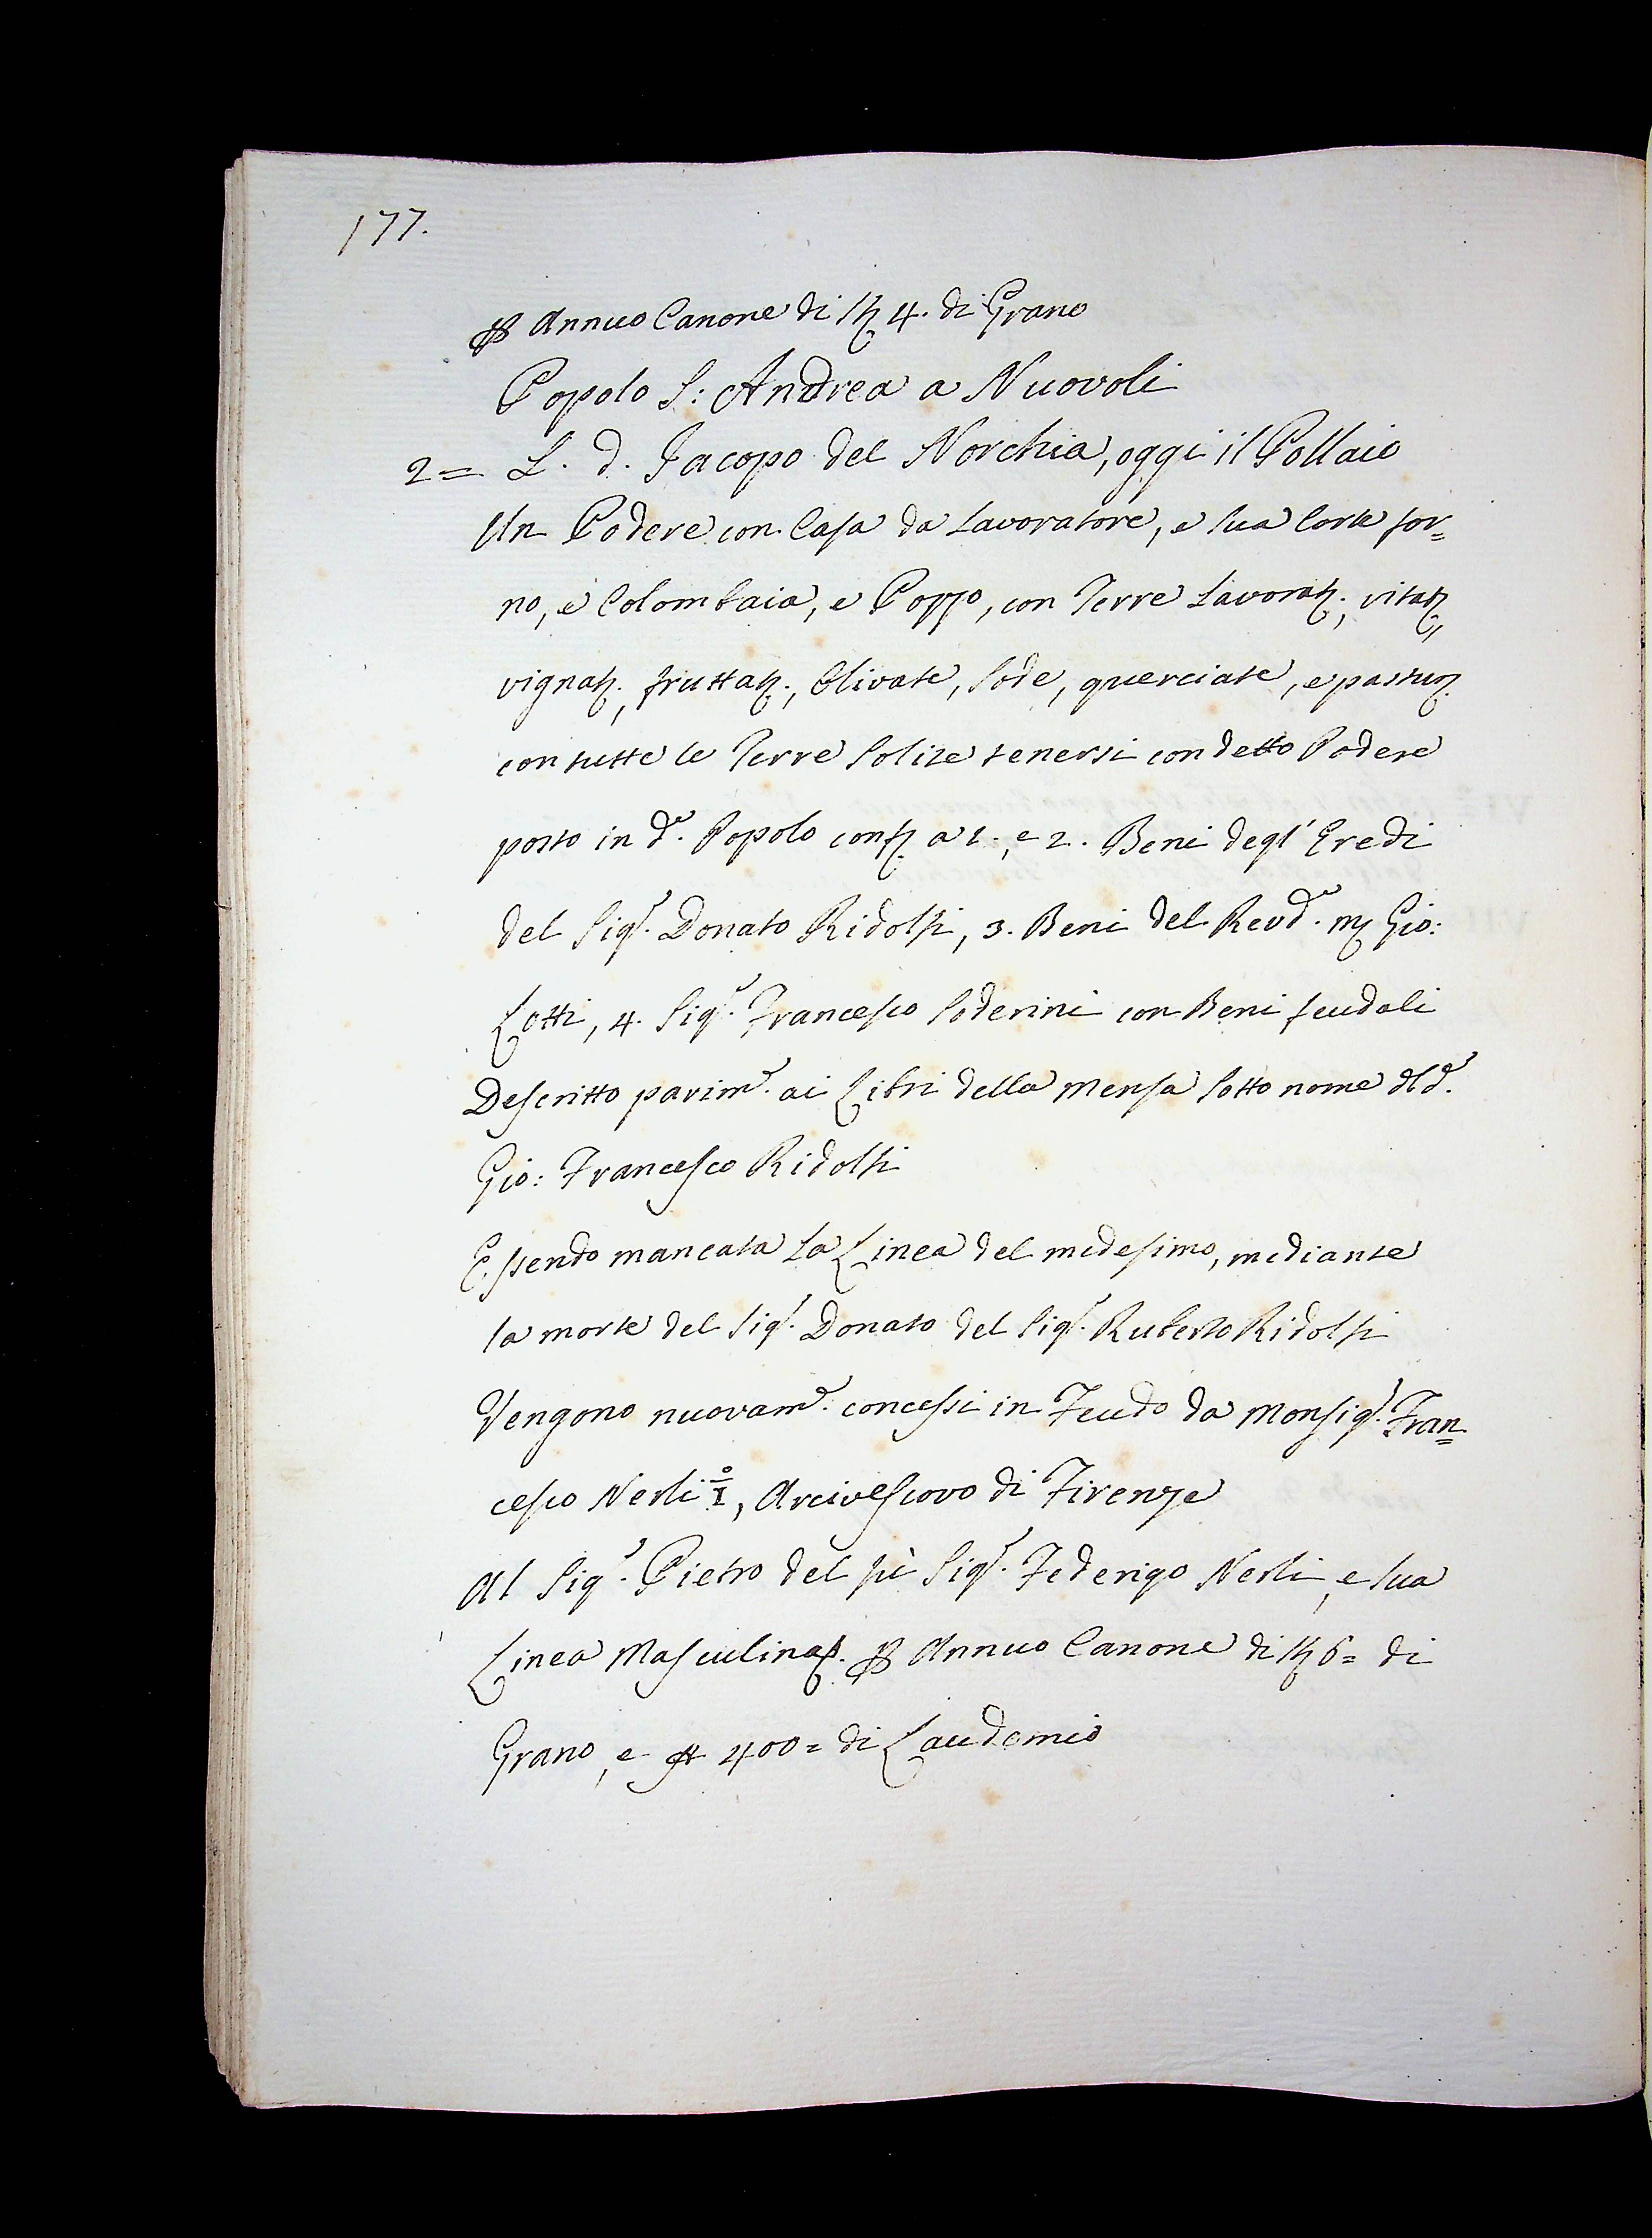 177.
Annuo Canone di 4. di Grano
Popolo S: Andrea a Nuovoli
2= L. d. Jacopo del Norchia, oggi il Pollaio
Un Podere con Casa da Lavoratore, e sua Corte for=
no, e Colombaia, e Pozzo, con Terre Lavorat.; vitat.,
vignat., fruttat., Olivate, Sode, querciate, e pastur.
con tutte le Terre Solite tenersi con detto Podere
posto in do. Popolo conf. a 1., e 2. Beni degl' Eredi
del Sigr. Donato Ridolfi, 3. Beni del Revdo. Gio:
Lotti, 4. Sigr. Francesco Soderini con Beni feudali
Descritto parimte. ai Libri della Mensa Sotto nome dldo.
Gio: Francesco Ridolfi
Essendo mancata La Linea del medesimo, mediante
la morte del Sigr. Donato del Sigr. Ruberto Ridolfi
Vengono nuovamte. concessi in Feudo da Monsigr. Fran=
cesco Nerli Io, Arcivescovo di Firenze
Al Sigr. Pietro del fù Sigr. Federigo Nerli, e Sua
Linea Masculina Annuo Canone di 6= di
Grano, e 400= di Laudemio